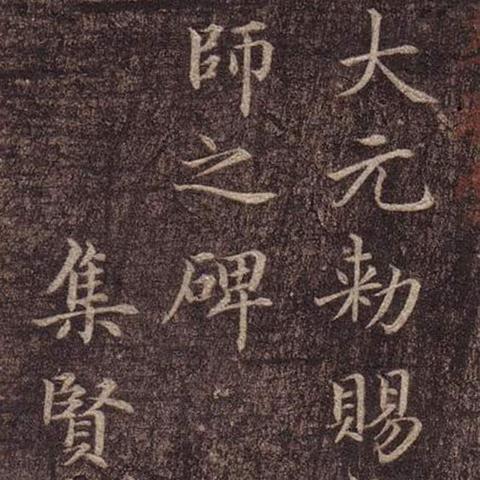 大元敕賜
師之碑
集賢